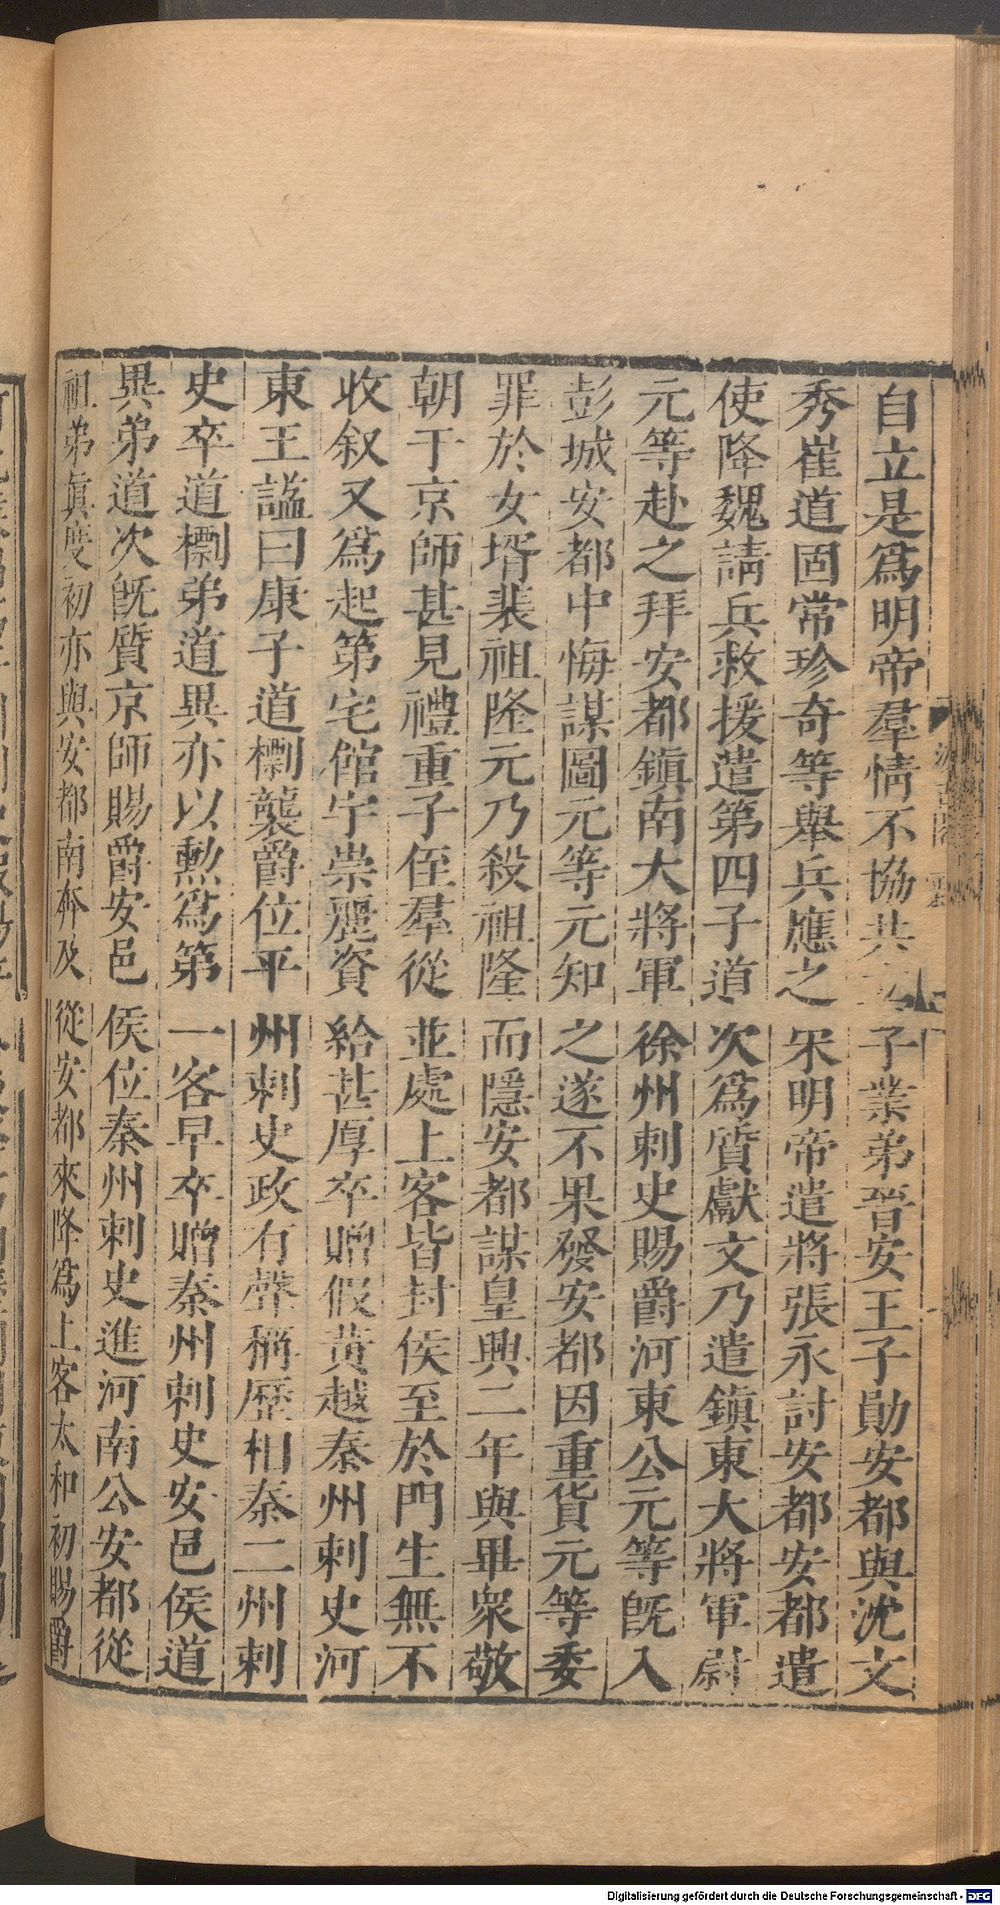 自立是爲明帝羣情不協共子業弟晉安王子勛安都與沈文
秀崔道固常珍奇等舉兵應之宋明帝遣將張永討安都安都遣
使降魏請兵救援遣第四子道次爲質獻文乃遣鎭東大將軍尉
元等赴之拜安都鎭南大將軍徐州刺史賜爵河東公元等旣入
彭城安都中悔謀圖元等元知之遂不果發安都因重貨元等委
罪於女壻裴祖隆元乃殺祖隆而隱安都謀皇興二年與畢衆敬
朝于京師甚見禮重子侄羣從並處上客皆封侯至於門生無不
收叙又爲起第宅館宇崇麗資給甚厚卒贈假黃越秦州刺史河
東王諡曰康子道檦襲爵位平州刺史政有聲稱歷相秦二州刺
史卒道檦弟道異亦以勳爲第一客早卒贈秦州刺史安邑侯道
異弟道次旣質京師賜爵安邑侯位秦州刺史進河南公安都從
祖弟眞度初亦與安都南奔及從安都來降爲上客太和初賜爵
Digitalisierung gefördert durch die Deutsche Forschungsgemeinschaft - DFG